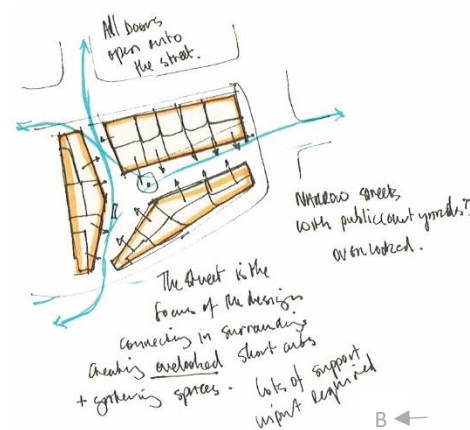 All Doors
open onto
the street.
NARROW streets
with public courtyards?
overlooked.
The street is the
focus of the design
connecting in surroundings
creating overlooked short cuts
+ gathering spaces.
Lots of support
input required
B